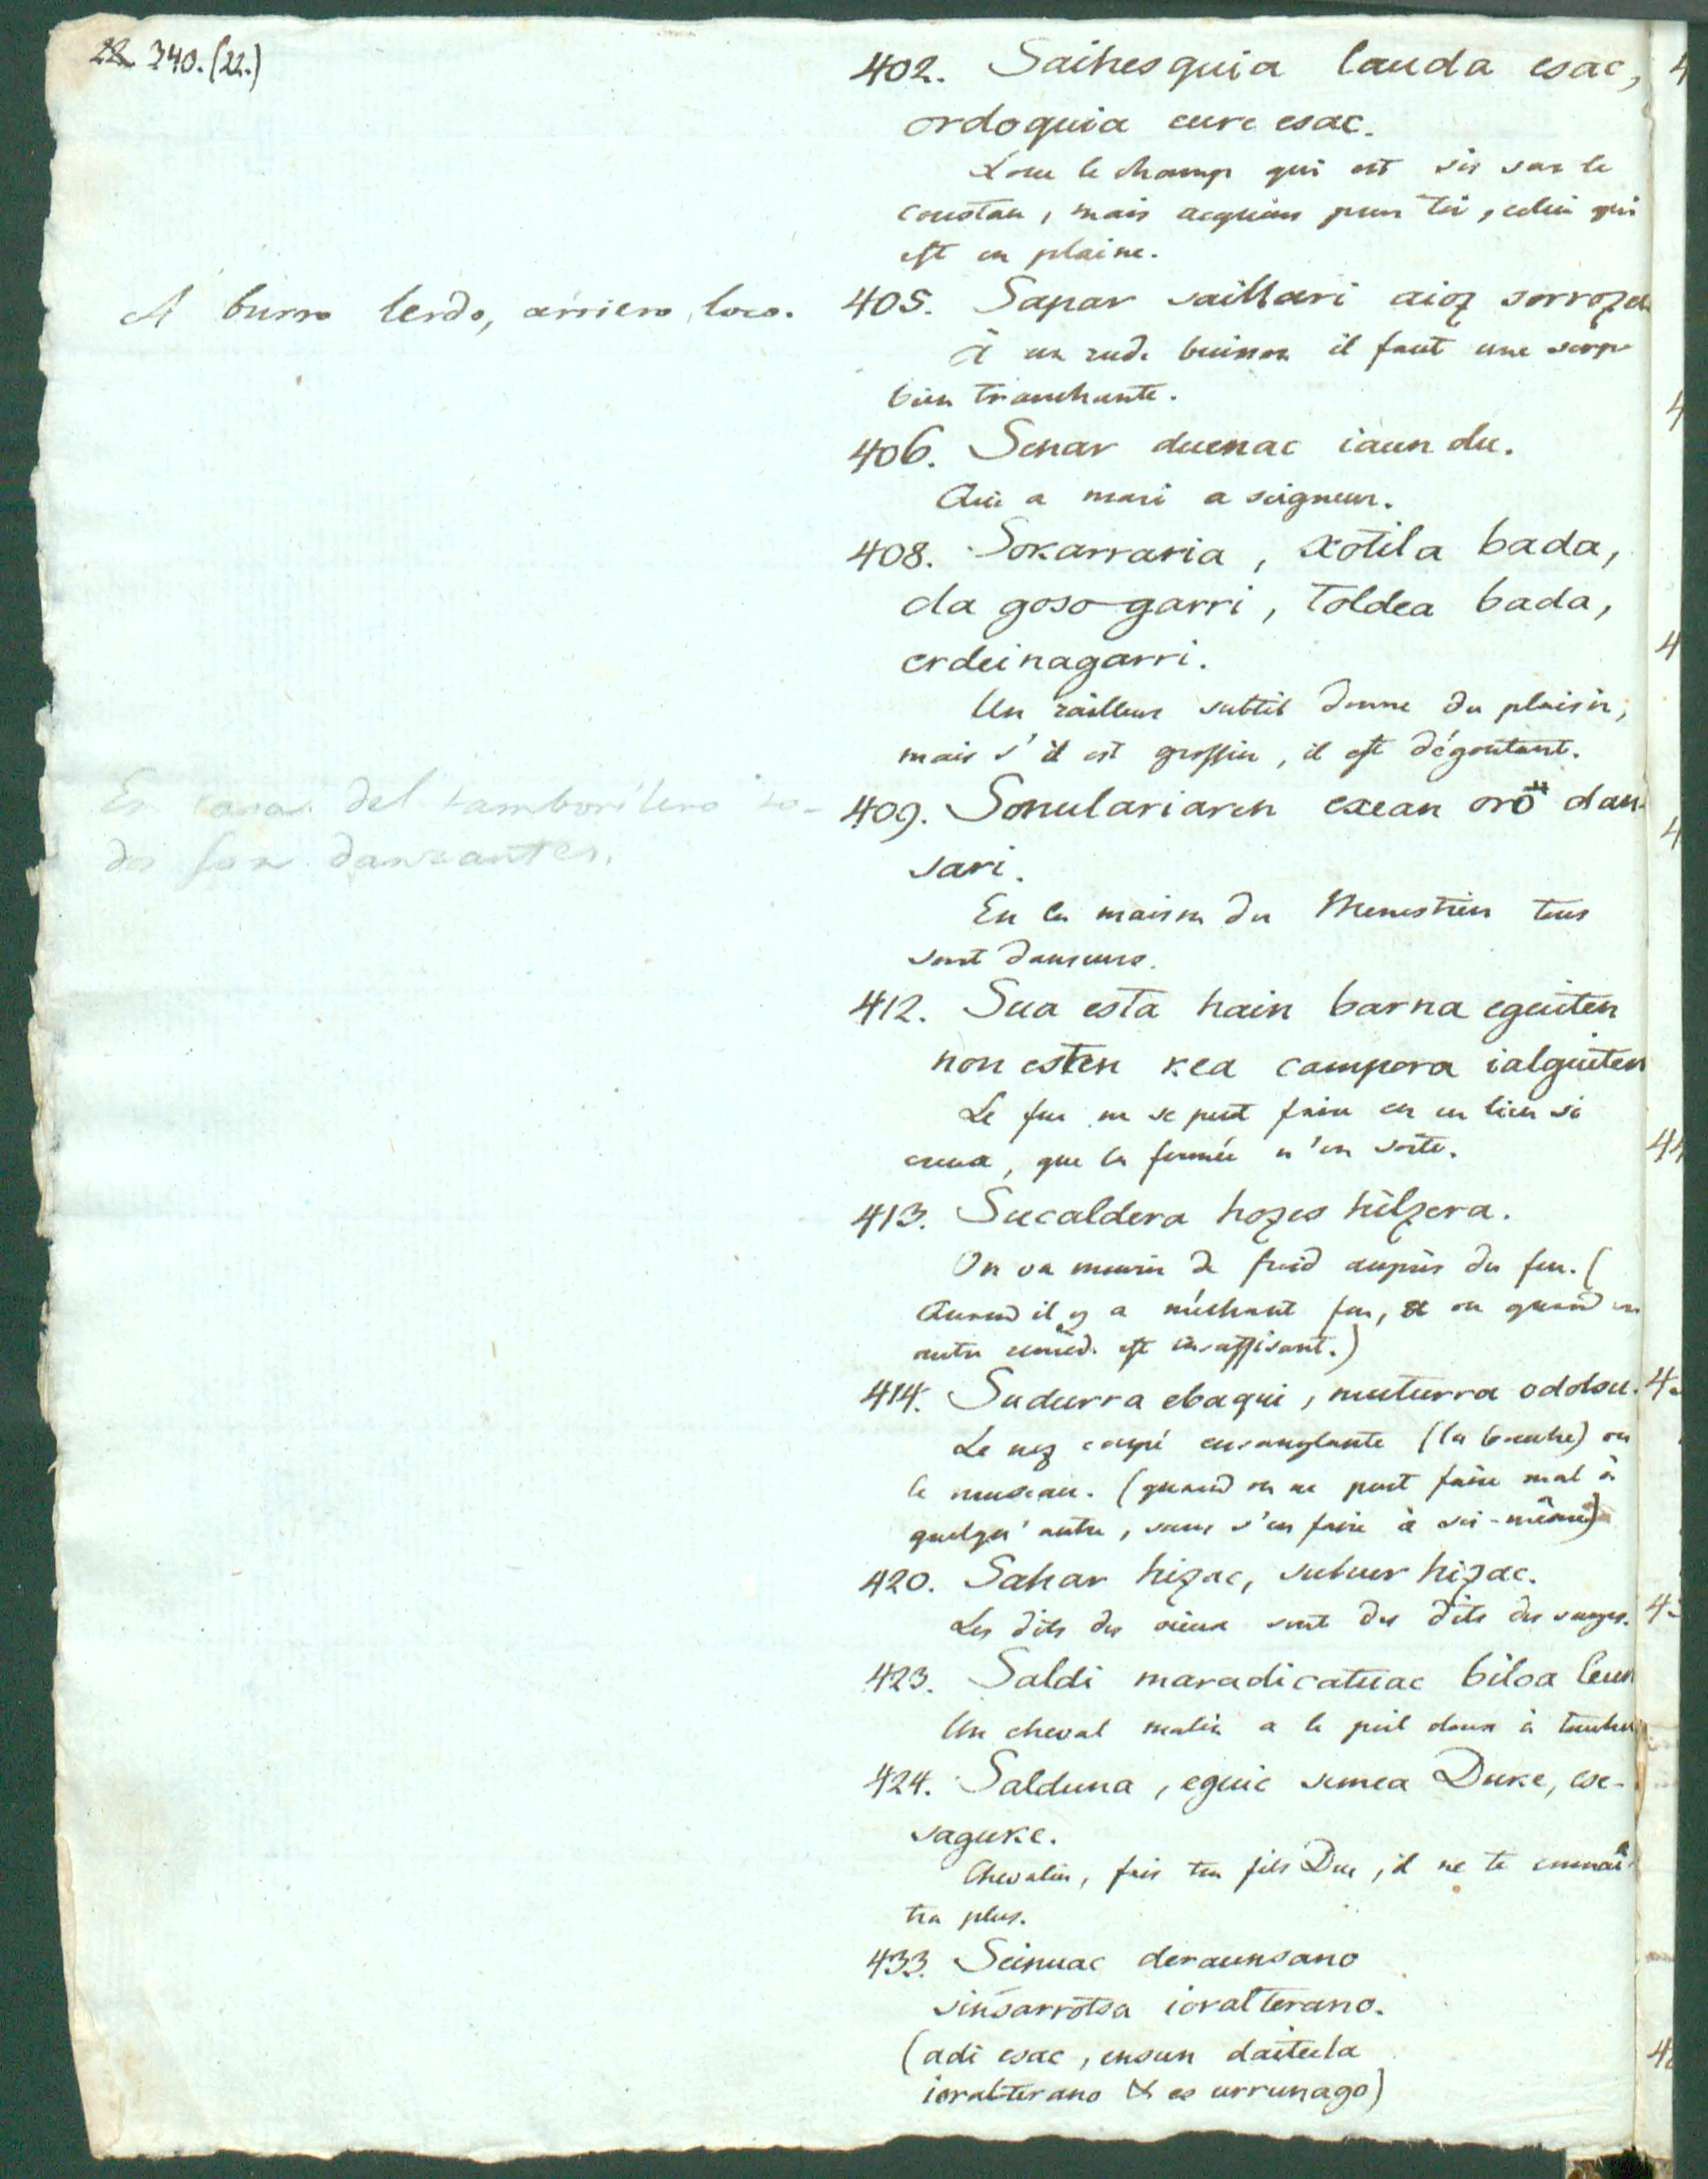 22 340. (22.)
402. Saihesquia lauda esac,
ordoquia eure esac.
Loue le champ qui est sis sur le
coustau, mais acquiers pour toi, celui qui
est en plaine.
A burro lerdo, arriero loco.
405. Sapar saillari aioz sorroza
À un rude buisson il faut une serpe
bien tranchante.
406. Senar duenac iaun du.
Qui a mari a seigneur.
408. Sokarraria, xotila bada,
da gosogarri, toldea bada,
erdeinagarri.
Un railleur subtil donne du plaisir,
mais s'il est grossier, il est dégoutant.
En casa del tamborilero to-
dos son danzantes.
409. Sonulariaren exean oro dan-
sari.
En la maison du Menestrier tous
sont danseurs.
412. Sua esta hain barna eguiten
non esten kea campora ialguiten
Le feu ne se peut faire en un lieu si
creux, que la fumée n'en sorte.
413. Sucaldera hozes hilzera.
On va mourir de froid auprès du feu. (
Quand il y a méchant feu, ou quand un
autre remède est insuffisant.)
414. Sudurra ebaqui, muturra odolsu.
Le nez coupé ensanglante (la bouche) ou
le museau. (quand on ne peut faire mal à
quelqu'autre, sans s'en faire à soi-même)
420. Sahar hizac, suhur hizac.
Les dits des vieux sont des dits des sages.
423. Saldi maradicatuac biloa leun
Un cheval malin a le poil doux à toucher
424. Salduna, eguic semea Duke, ese-
saguke.
Chevalier, fais ton fils Duc, il ne te connaî-
tra plus.
433. Seinuac deraunsano
sinsarrotsa ioralterano.
(adi esac, ensun daiteela
ioralterano & es urrunago)